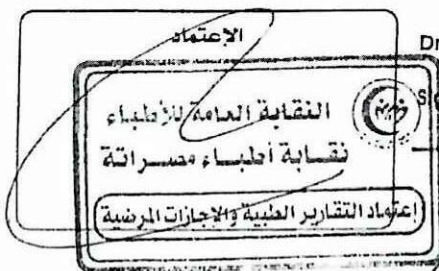 الإعتماد
Dr
النقابة العامة للأطباء
نقابة أطباء مصراتة
إعتماد التقارير الطبية والإجازات المرضية